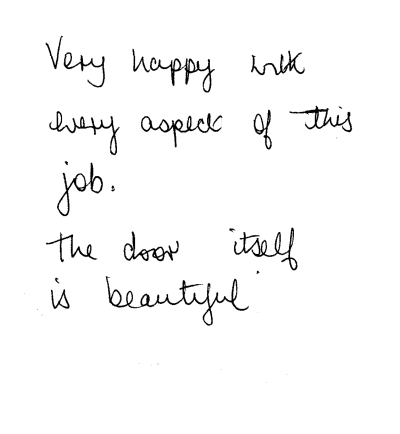 Very happy with
every aspect of this
job.
The door itself
is beautiful